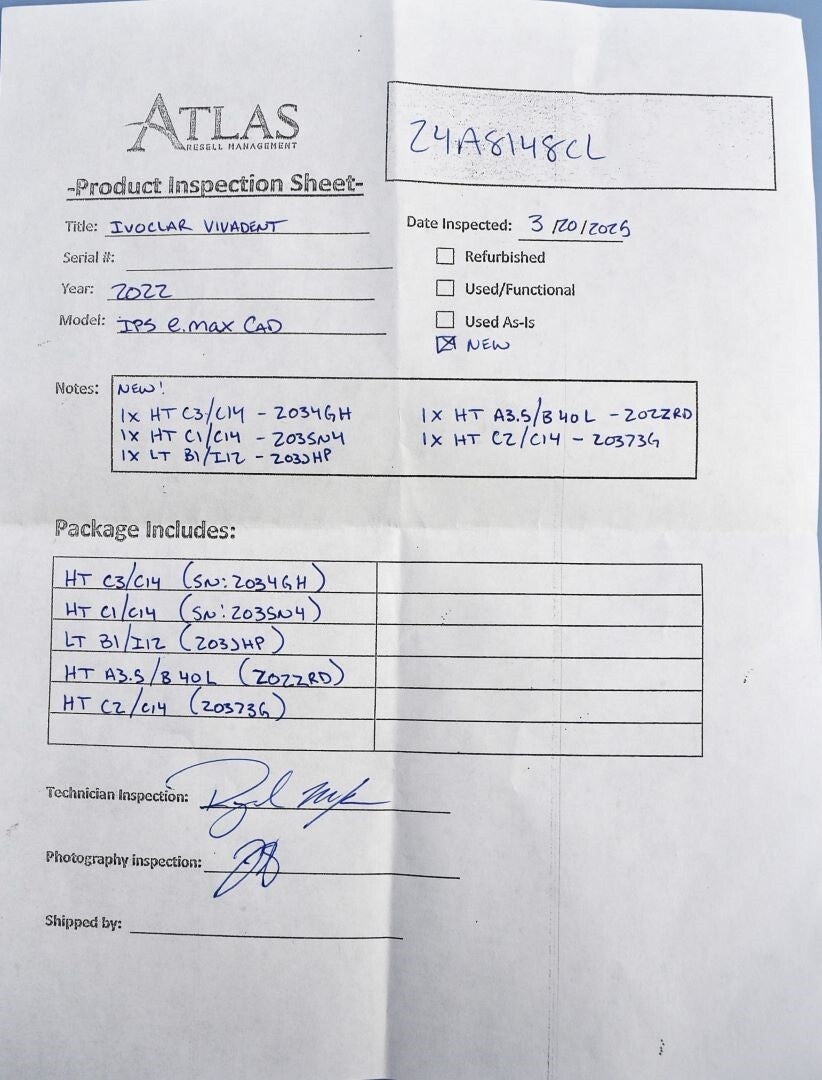 ATLAS
RESELL MANAGEMENT
24A8148CL
-Product Inspection Sheet-
Title: IVOCLAR VIVADENT
Date Inspected: 3/20/2025
Serial #:
Refurbished
Year: 2022
Used/Functional
Model: IPS e.max CAD
Used As-Is
NEW
Notes: NEW!
1X HT C3/C14 - 2034GH
1X HT A3.5/B40L - 2022RD
1X HT C1/C14 - 203SN4
1X HT C2/C14 - 20373G
1X LT B1/I12 - 203JHP
Package Includes:
HT C3/C14 (SN: 2034GH)
HT C1/C14 (SN: 203SN4)
LT B1/I12 (203JHP)
HT A3.5/B40L (2022RD)
HT C2/C14 (20373G)
Technician Inspection:
Photography inspection:
Shipped by: